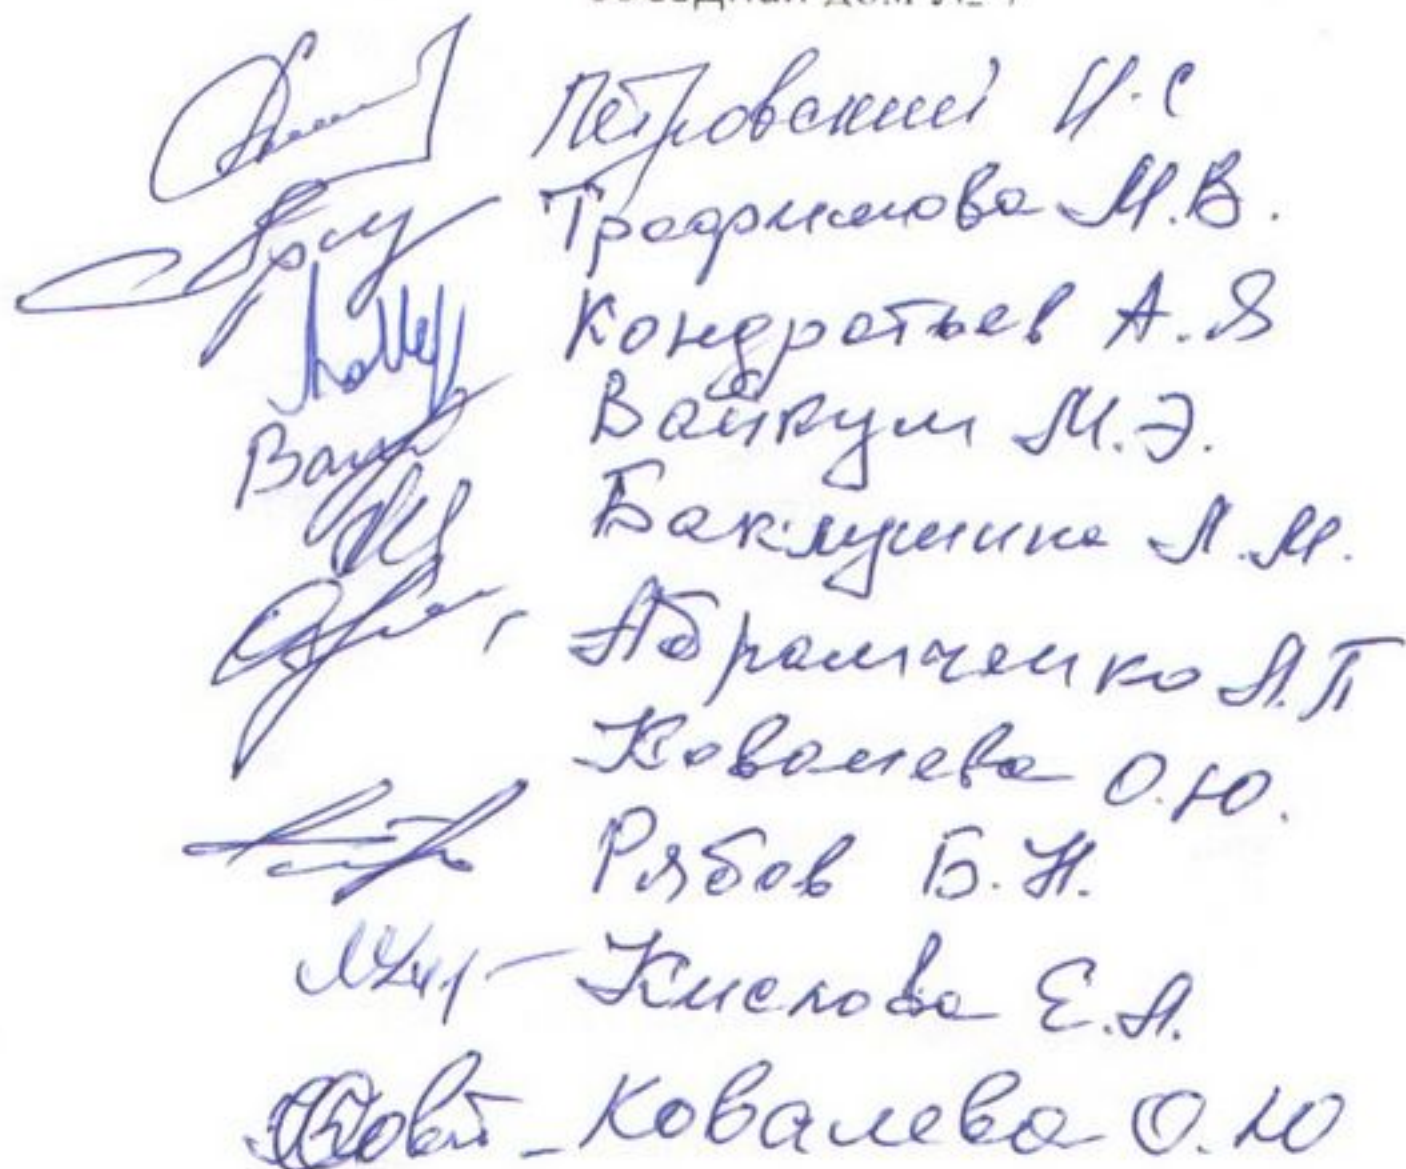 Петровский И.С
Трофимова М.В.
Кондратьев А.Я
Вайкум М.Э.
Баклушина Л.М.
Абрамченко А.П
Ковалева О.Ю.
Рябов Б.Н.
Кислова Е.А.
Ковалева О.Ю